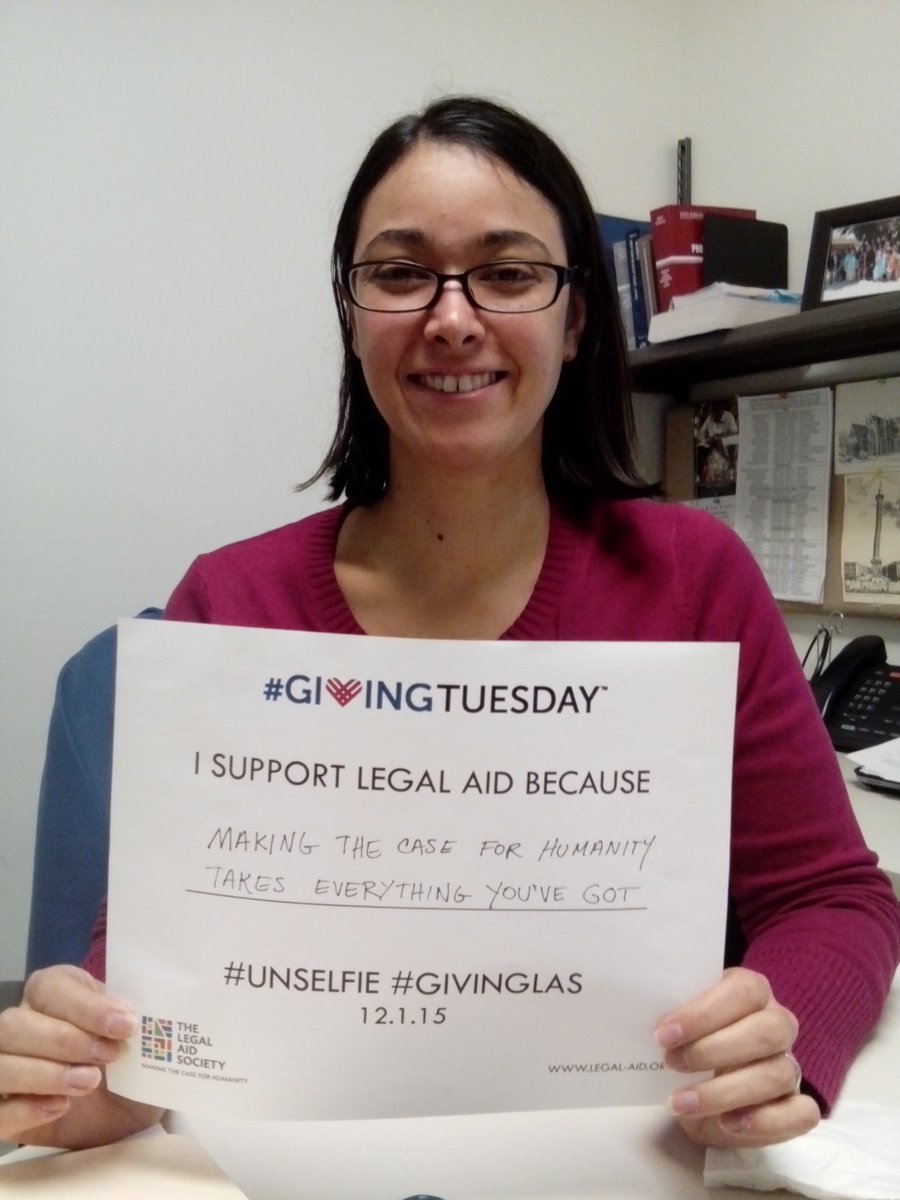 #GIVINGTUESDAY™
I SUPPORT LEGAL AID BECAUSE
MAKING THE CASE FOR HUMANITY
TAKES EVERYTHING YOU'VE GOT
#UNSELFIE #GIVINGLAS
12.1.15
THE
LEGAL
AID
SOCIETY
MAKING THE CASE FOR HUMANITY
WWW.LEGAL-AID.OR